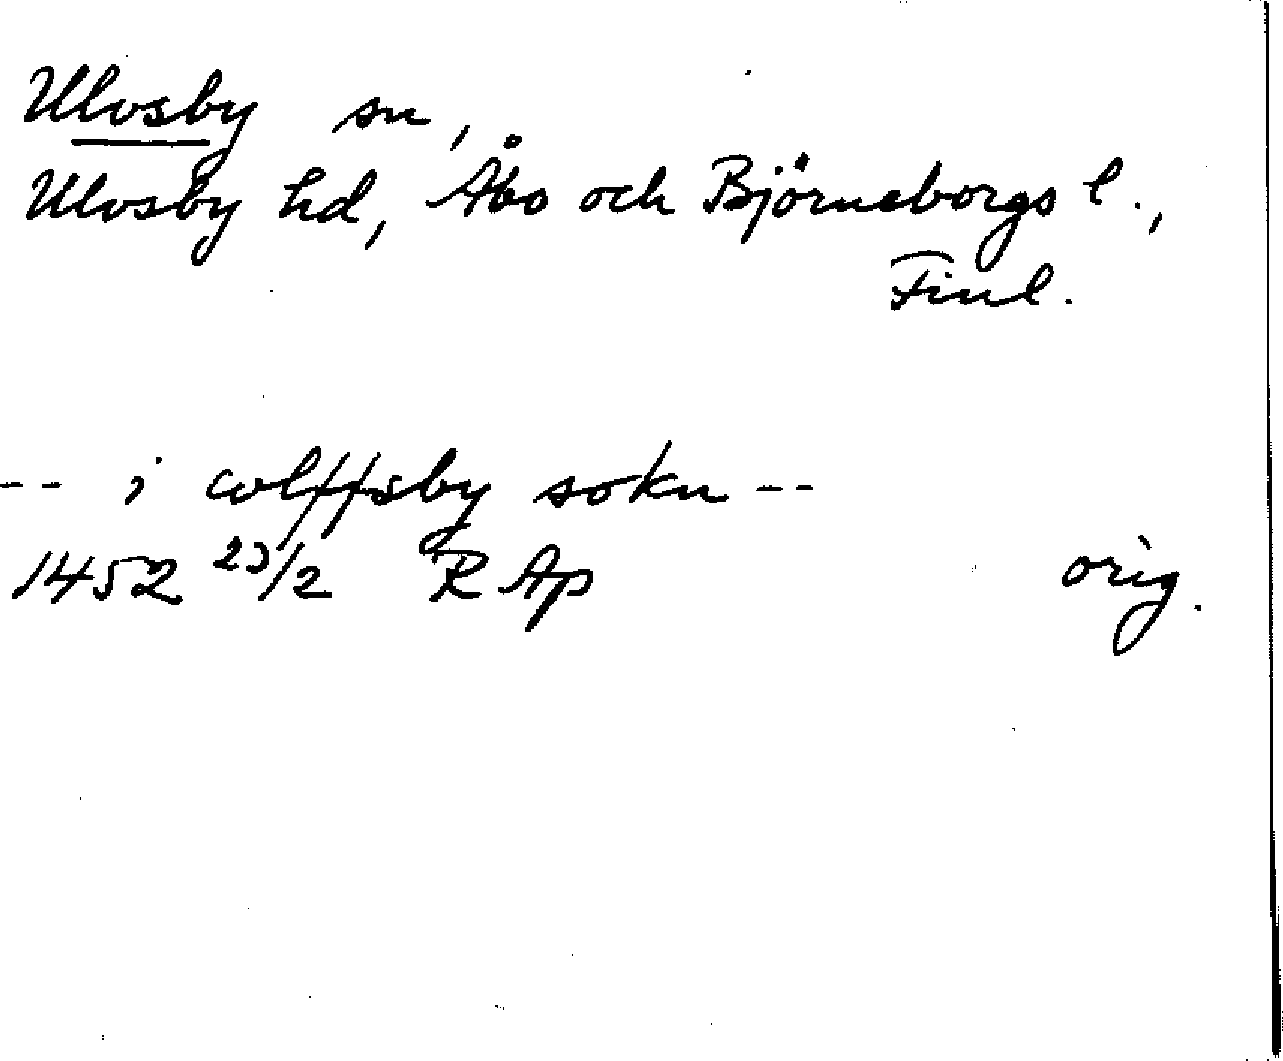 Ulvsby sn,
Ulvsby hd, Åbo och Björneborgs l.,
Finl.
-- i wlffsby sokn --
1452 23/2 RAp orig.